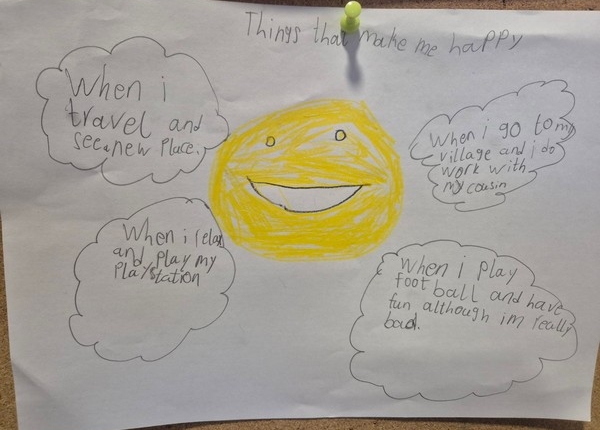 Things that make me happy
When i
travel and
see a new place.
When i go to my
village and i do
work with
my cousin
When i relax
and play my
Playstation
When i play
foot ball and have
fun although im really
bad.